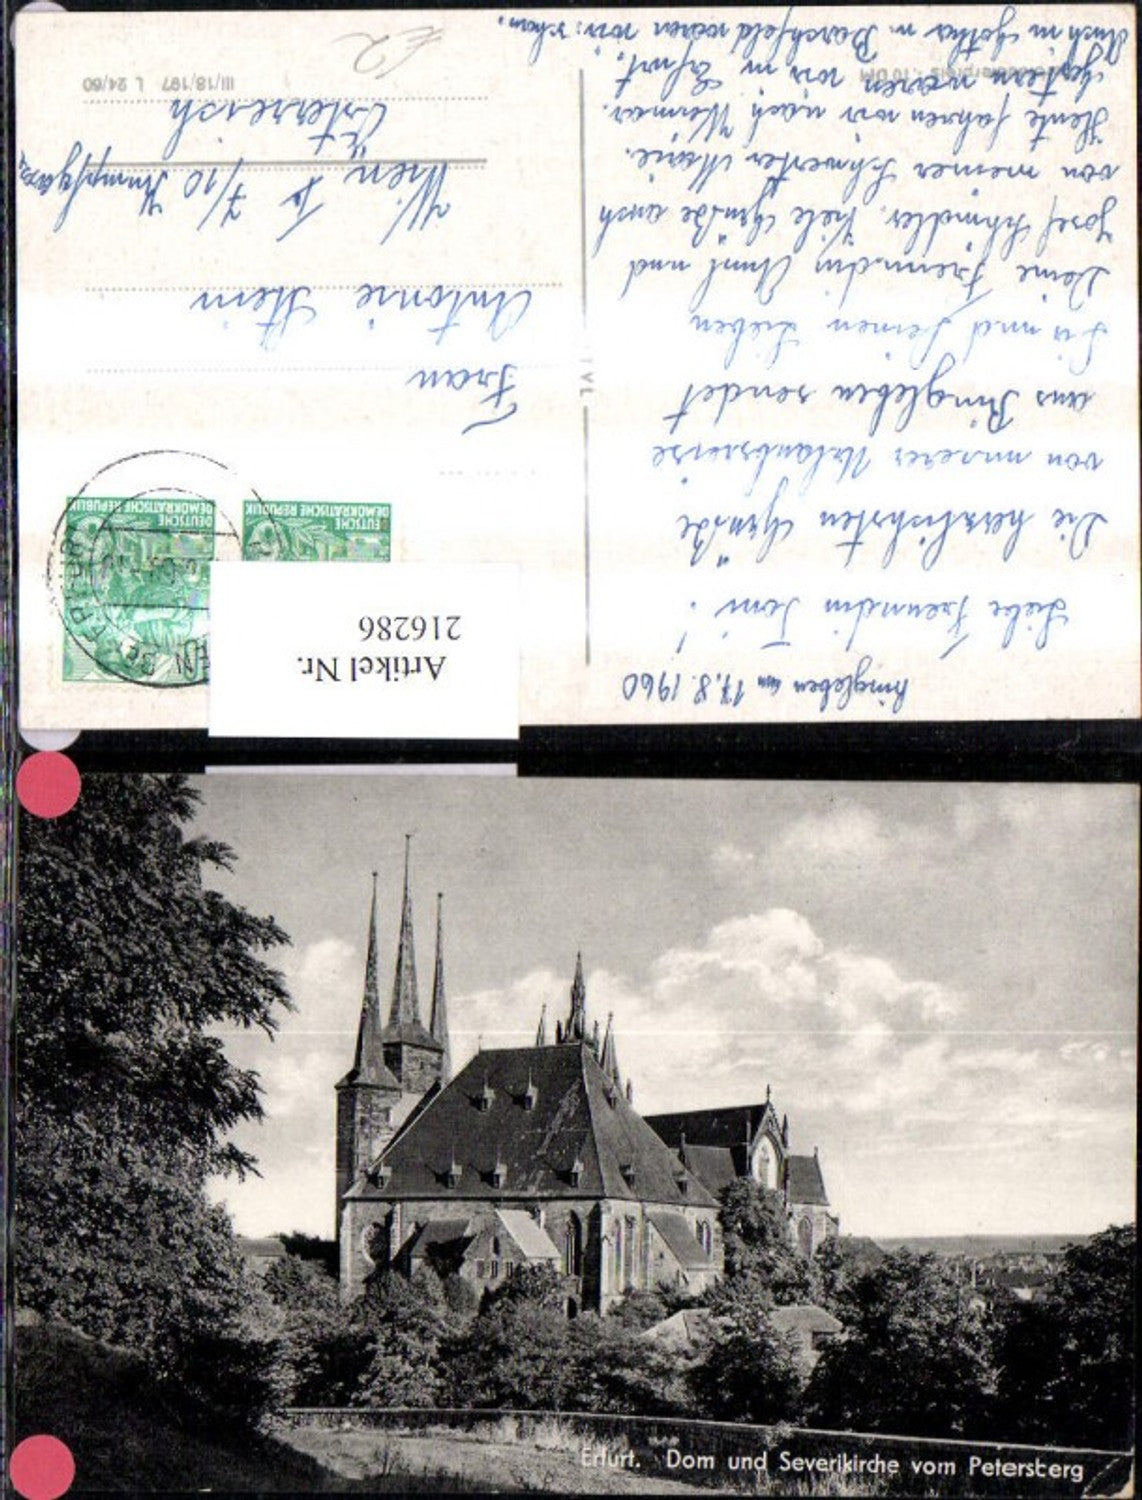 Ringleben am 17.8.1960
Liebe Freundin Toni!
Die herzlichsten Grüße
von unserer Urlaubsreise
aus Ringleben sendet
Dir und Deinen Lieben
Deine Freundin Anni und
Josef Schindler. Viele Grüße auch
von meiner Schwester Marie.
Heute fahren wir nach Weimar.
Gestern waren wir in Erfurt.
Auch in Gotha u. Barchfeld waren wir
DEUTSCHE
DEMOKRATISCHE REPUBLIK
DEUTSCHE
DEMOKRATISCHE REPUBLIK
Frau
Antonie Stein
Wien I 7/10
Österreich
III/18/197 L 24/60
Artikel Nr.
216286
Erfurt. Dom und Severikirche vom Petersberg